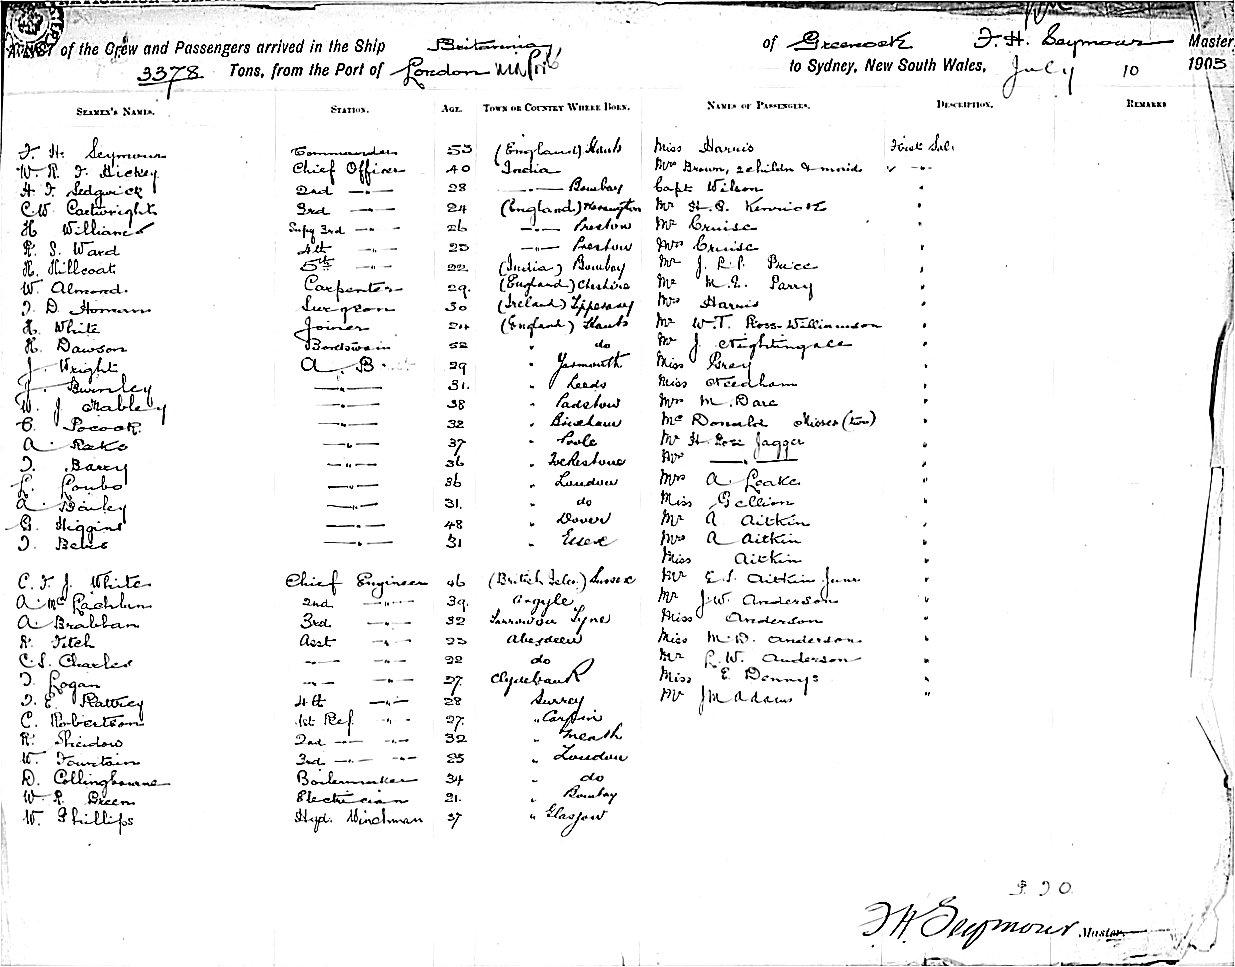 of the Crew and Passengers arrived in the Ship Britannia of Greenock F. H. Seymour Master
3378 Tons, from the Port of London to Sydney, New South Wales, July 10 1903
SEAMEN'S NAMES. STATION. AGE. TOWN OR COUNTRY WHERE BORN. NAMES OF PASSENGERS. DESCRIPTION. REMARKS
F. H. Seymour Commander 53 (England) Hants Miss Harris First Sal.
W. R. F. Hickey Chief Officer 40 India Mrs Brown, 2 childn & maid
H F. Sedgwick 2nd —"— 28 —"— Bombay Capt Wilson "
C. W. Cartwright 3rd —"— 24 (England) Kensington Mr H. S. Kenrick "
H Williams Supy 3rd —"— 26 —"— Preston Mr Cruise "
R. S. Ward 4th —"— 25 —"— Preston Mrs Cruise "
H. Hillcoat 5th —"— 22 (India) Bombay Mr J. R. P. Price "
W. Almond Carpenter 29 (England) Cheshire Mr M. E. Parry "
T. D. Homan Surgeon 30 (Ireland) Tipperary Mrs Harris "
H. White Joiner 24 (England) Hants Mr W. T. Ross-Williamson "
H. Dawson Boatswain 52 " do Mr J. Nightingale "
J. Wright A. B. 29 " Yarmouth Miss Gray "
J. Burnley —"— 31 " Leeds Miss Needham "
W. J. Mabley —"— 38 " Padstow Mrs M. Dare "
C. Pocock —"— 32 " Brixham McDonald Misses (two) "
A. —"— 37 " Poole Mr H Rose Jagger "
T. Barry —"— 36 " Folkestone Mrs —"— "
L. Loubo —"— 36 " London Mrs A Leake "
A. Bailey —"— 31 " do Miss Gellion "
G. Higgins —"— 48 " Dover Mr A Aitkin "
T. —"— 31 " Essex Mrs A Aitkin "
Miss Aitkin "
C. F. J. White Chief Engineer 46 (British Isles) Sussex Mr E. S. Aitkin Junr "
A. McLachlan 2nd —"— 39 Argyle Mr J. W. Anderson "
A. Brabban 3rd —"— 32 Jarrow on Tyne Miss Anderson "
R. Fitch Asst —"— 23 Aberdeen Miss M. D. Anderson "
C. S. Charles —"— —"— 22 do Mr R. W. Anderson "
T. Logan —"— —"— 27 Clydebank Miss E. Dennys "
T. E. Rattrey 4th —"— 28 Surrey Mr J M Adams "
C. Robertson 1st Ref. —"— 27 "
R. 2nd —"— —"— 32 " Meath
W. Fountain 3rd —"— —"— 25 " London
D. Collingbourne Boilermaker 34 " do
W. R. Green Electrician 21 " Bombay
W. Phillips Hyd. Winchman 37 " Glasgow
F H Seymour Master